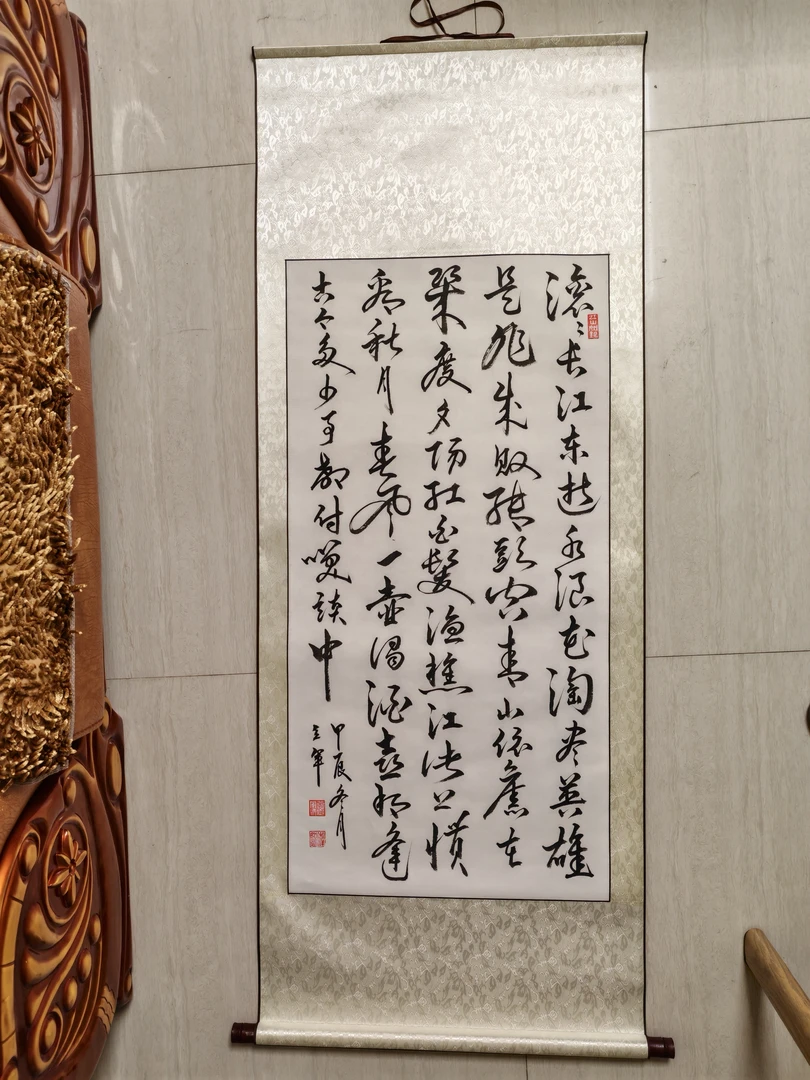 滚〻长江东逝水浪花淘尽英雄
是非成败转头空青山依舊在
几度夕阳红白髮渔樵江渚上惯
看秋月春风一壶浊酒喜相逢
古今多少事都付笑谈中
甲辰冬月
立军